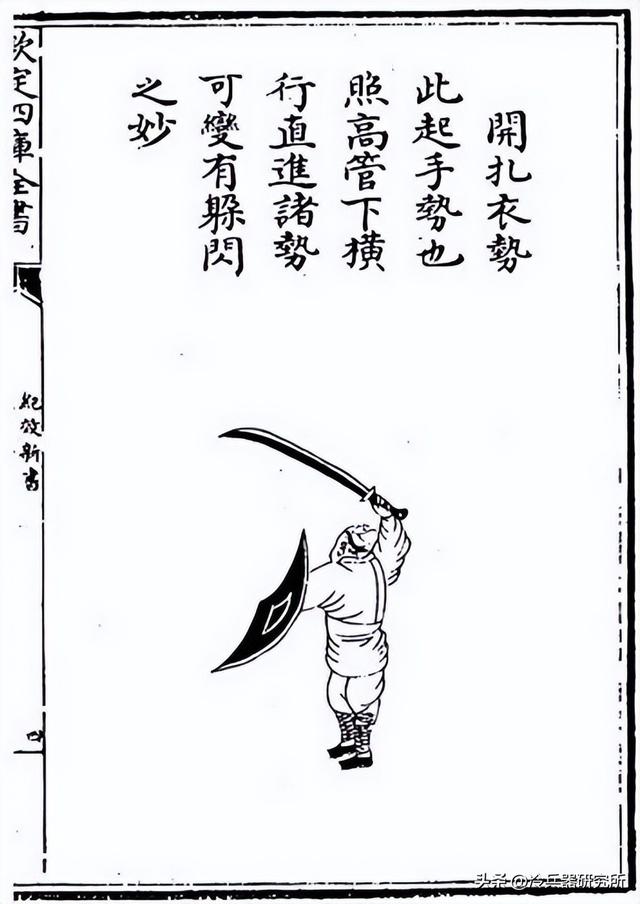 開扎衣勢
此起手勢也
照高管下橫
行直進諸勢
可變有躲閃
之妙
欽定四庫全書
紀效新書
四
头条@冷兵器研究所